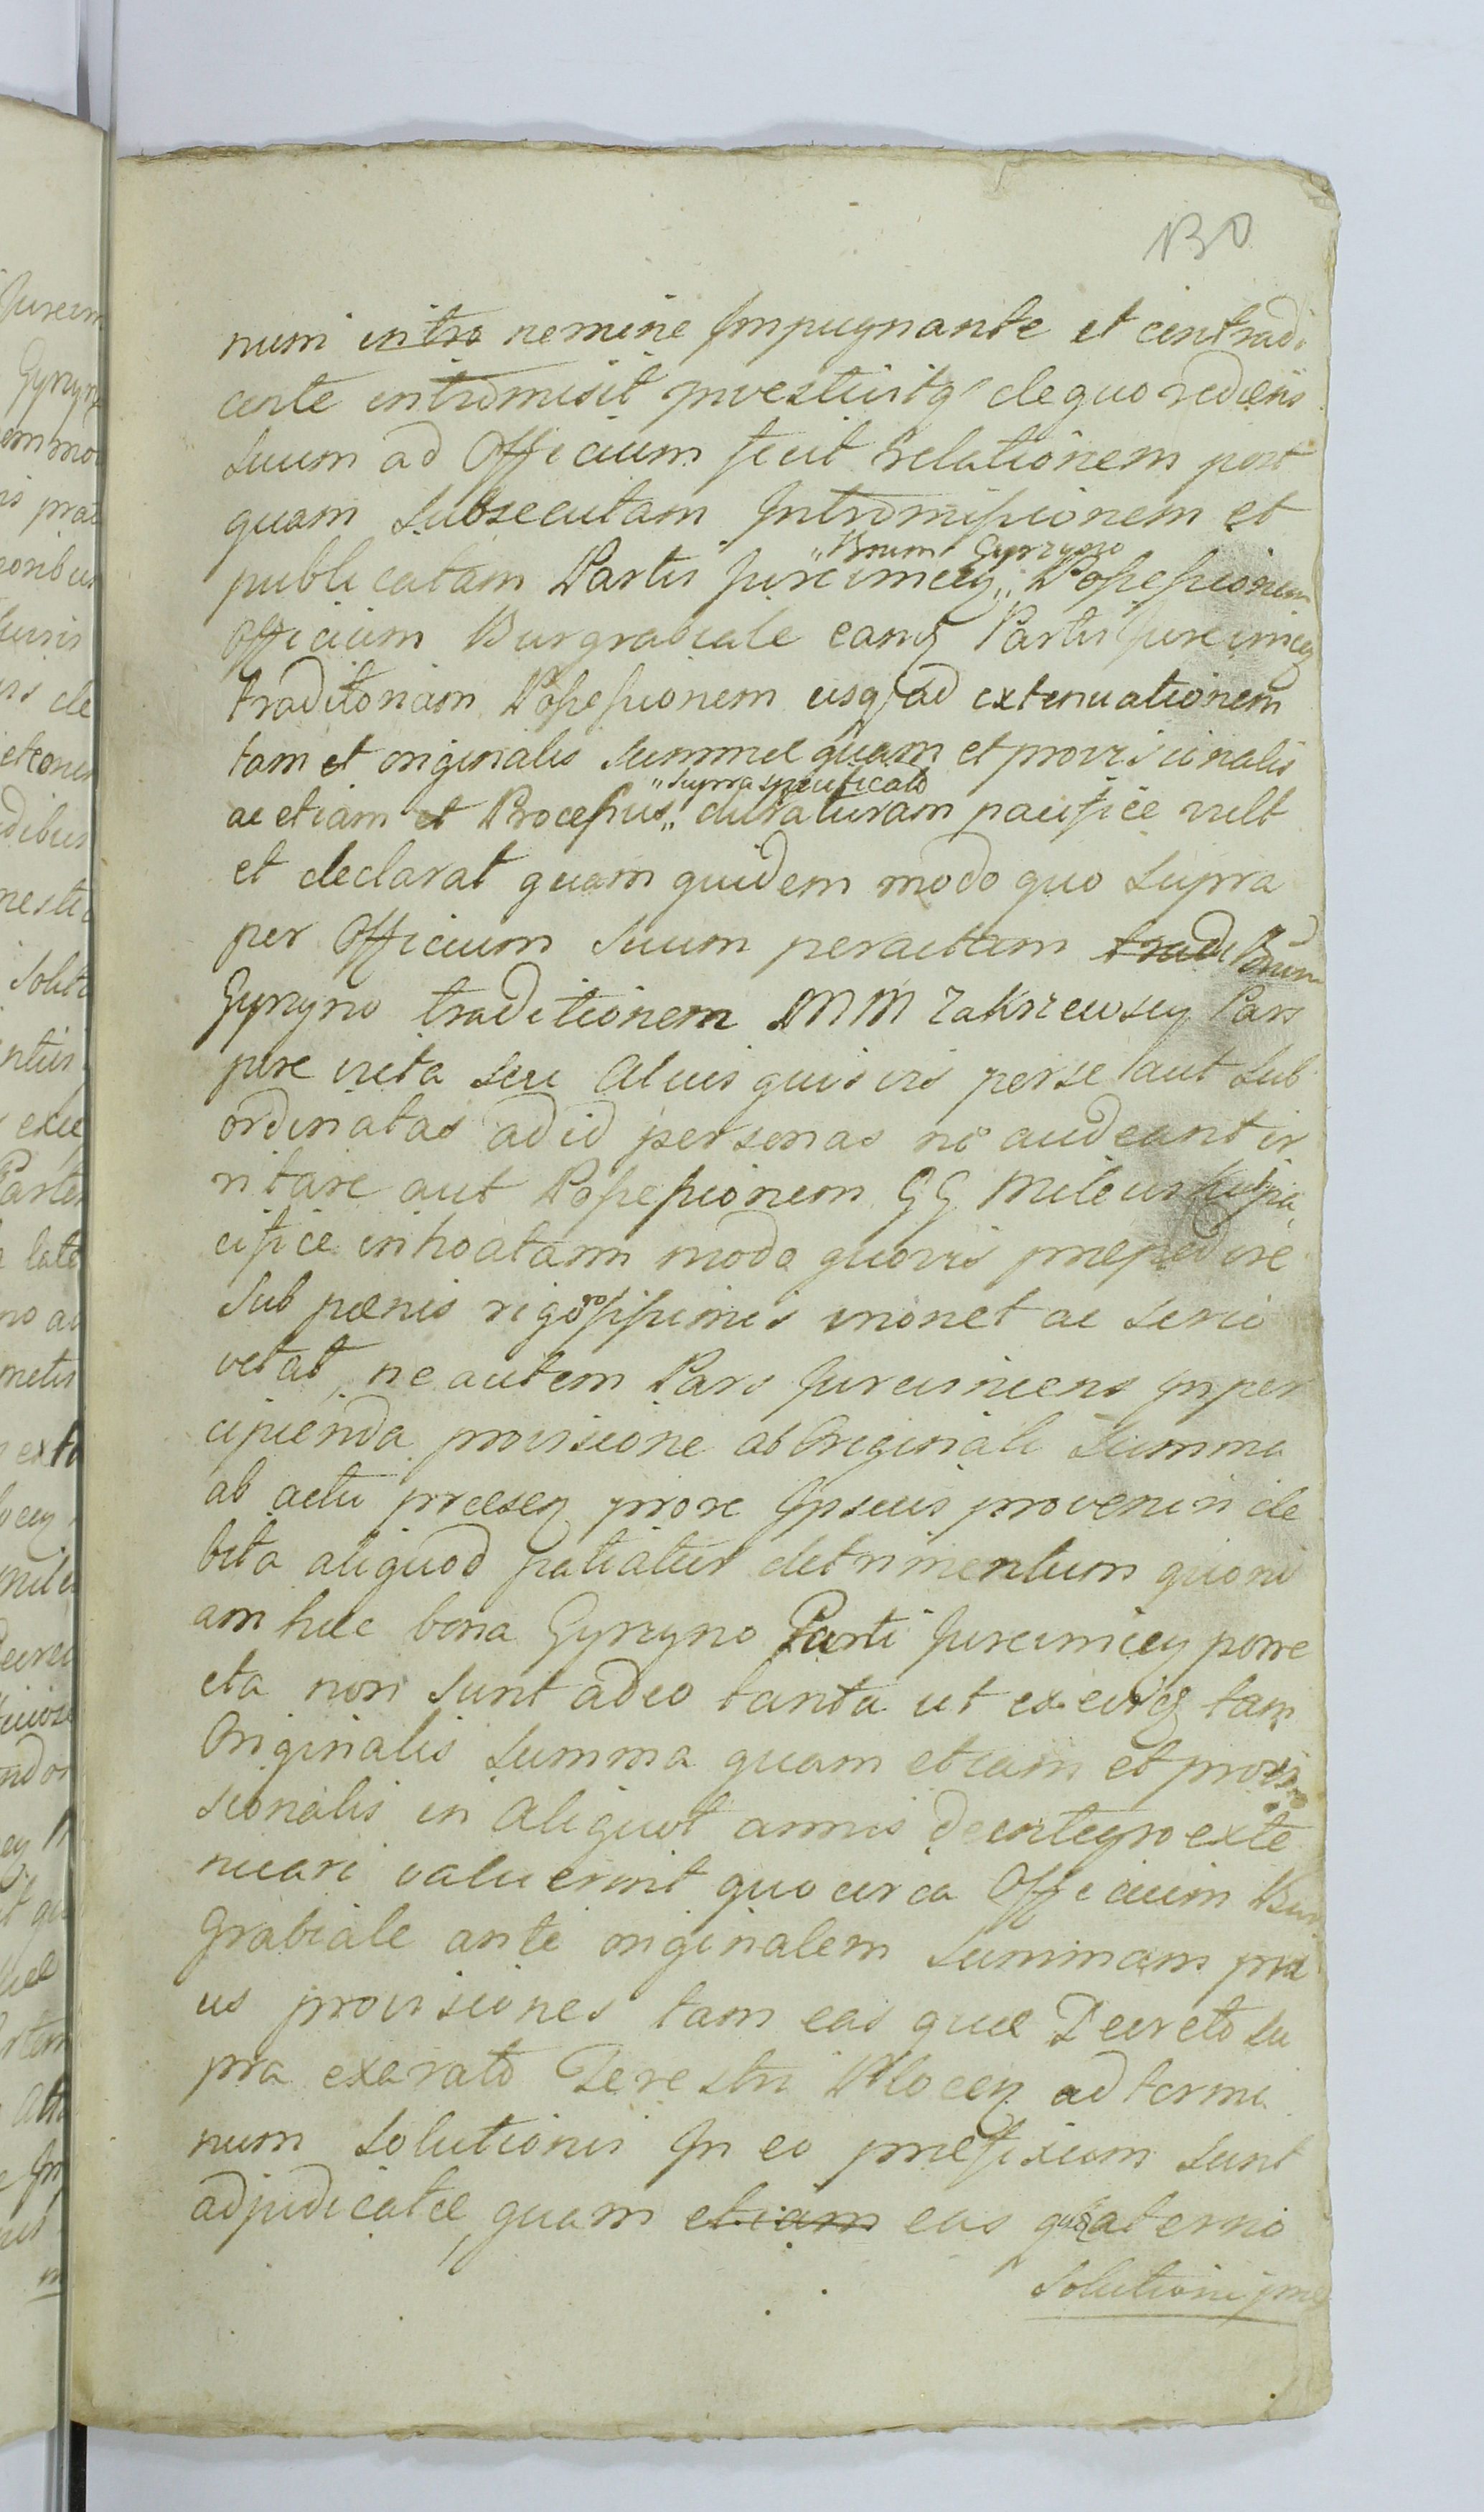 130
num intro nemine Impugnante et contradi
cente intromisit Investivitq' de quo rediens
suum ad Officium fecit relationem post
quam subsecutam Intromissionem et
„Bnrum Gyrzyno
publicatam Partis Jurevincey „ Possessionem
Officium Burgrabiale eamq Partis Jurevincey
traditoriam Possessionem usq ad extenuationem
tam et originalis summæ quam et provisionalis
„supra specificato
ac etiam et Processus „ duraturam pacifice vult
et declarat quam quidem modo quo supra
per Officium suum peractam tradi Bnrum
Gyrzyno traditionem MM Zakrzewscy Pars
jure victa seu Alius quisvis per se aut sub
ordinatas ad id personas nō audeant ir
ritare aut Possessionem GG Milewski pa
cifice inhoatam modo quovis præpedire
sub pœnis rigorosissimis monet ac serio
vetat, ne autem Pars Jurevincens In per
cipienda provisione ab Originali summa
ab actu præseq prore Ipsius provenin de
bita aliquod patiatur detrimentum quoni
am hæc bona Gyrzyno Parti Jurevincey porre
cta non sunt adeo tanta ut ex eisq tam
Originalis summa quam etiam et provi
sionalis in aliquot annis de integro exte
nuari valuerint quo circa Officium Bur
grabiale ante originalem summam pri
us provisiones tam eas quæ Decreto su
pra exarato Terestri Ploceq ad termi
num solutionis In eo præfixum sunt
adjudicatæ, quam etiam eas quæ a termino
solutioni præ